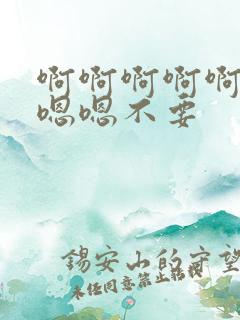 啊啊啊啊啊
嗯嗯不要
锡安山的守望
未任同意禁止转载